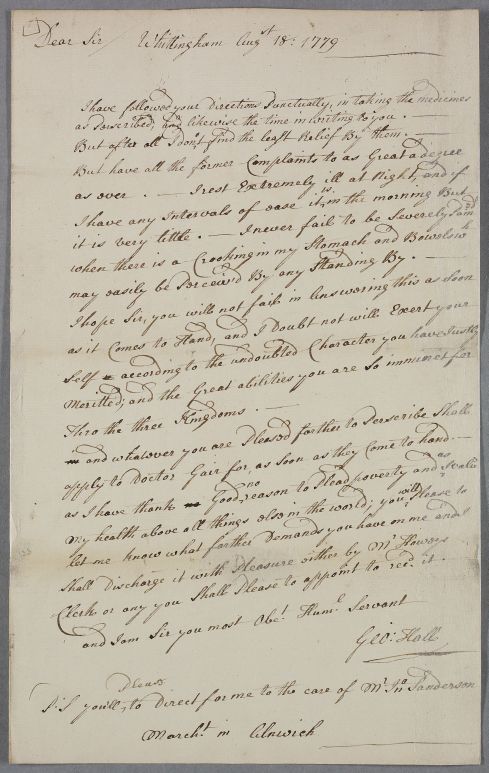 Dear Sir / Whittingham Augst 18: 1779
I have followed your directions Punctually, in taking the medicines
as Perscribed, and likewise the time in writing to you. —
But after all I don't find the least Relief By them. —
But have all the former Complaints to as Great a degree
as ever. — I rest Extremely ill at Night, and if
I have any Intervals of ease it is in the morning But
it is very little. — I never fail to be Severely Pained
when there is a Crooking in my Stomach and Bowels wh
may easily be Perceiv'd By any Standing By. —
I hope Sir, you will not fail in Answering this as soon
as it Comes to Hand, and I Doubt not will Exert your
Self according to the undoubted Character you have Justly
Meritted, and the Great abilities you are so for
Thro the three Kingdoms. —
and whatever you are Pleased farther to Perscribe Shall
apply to Doctor Gair for, as Soon as they Come to hand. —
as I have thank God, no reason to Plead poverty and as I value
my health above all things else in the world; you will Please to
let me know what farther Demands you have on me and I
Shall Discharge it with Pleasure either by Mr
Clerk or any you Shall Please to appoint to recd. it.
and I am Sir you most Obet. Humle. Servant
Geo: Hall
P:S you'll Please to Direct for me to the care of Mr. Jno Sanderson
Marcht. in Alnwick